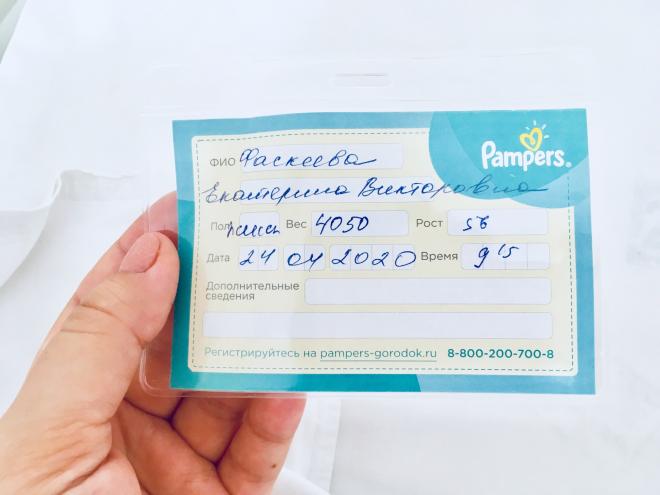 Pampers.
ФИО Фаскеева
Екатерина Викторовна
Пол Вес 4050 Рост 56
Дата 24 04 2020 Время 9 15
Дополнительные
сведения
Регистрируйтесь на pampers-gorodok.ru 8-800-200-700-8